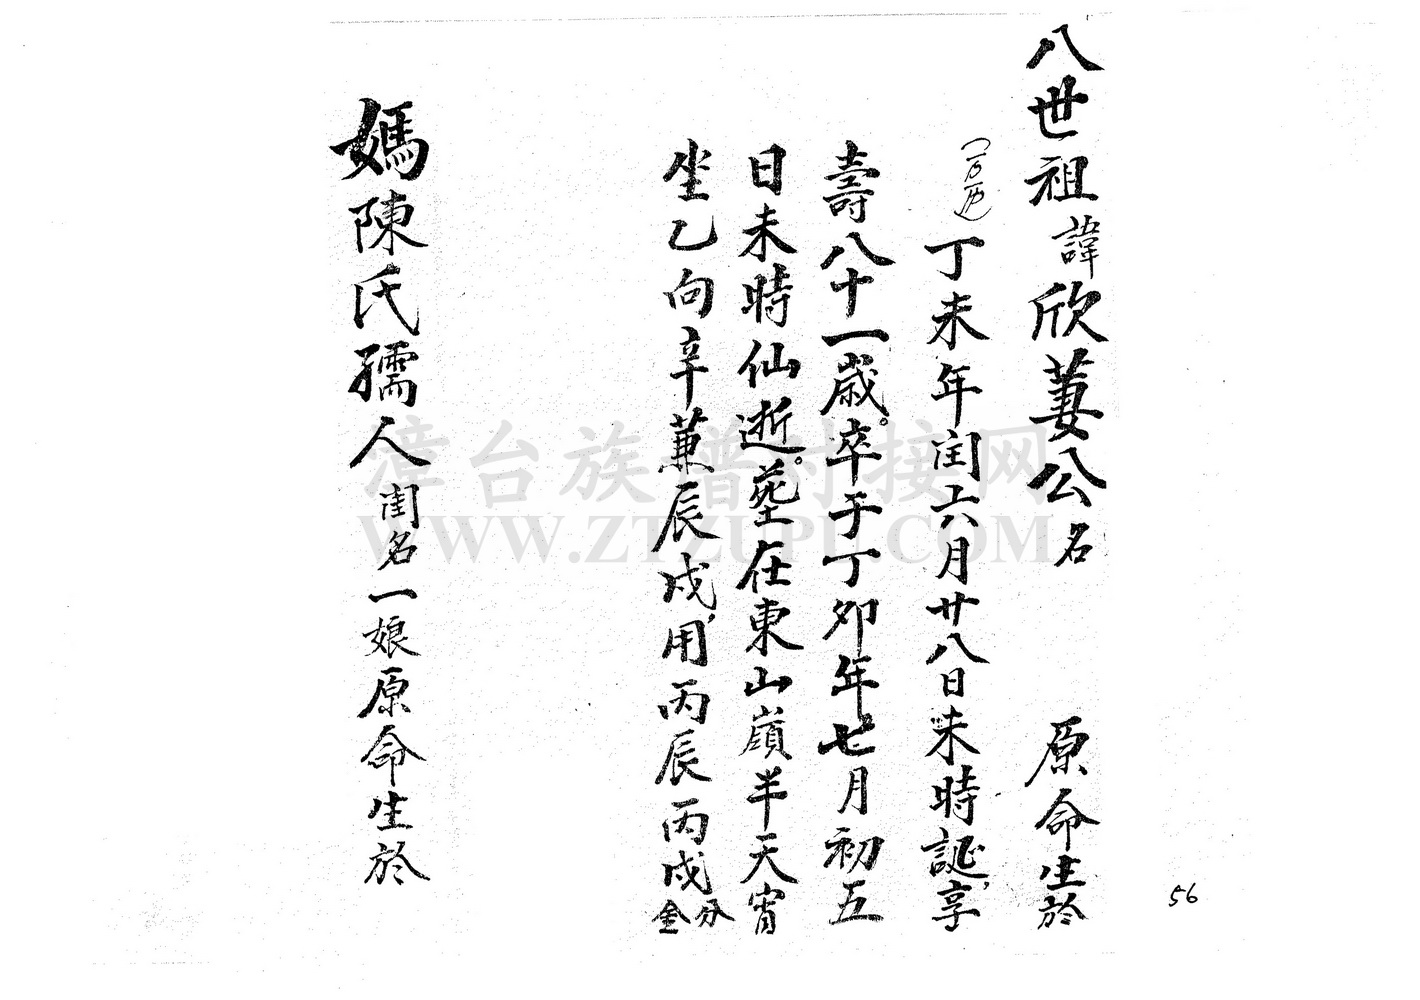 八世祖諱欣萋公名 原命生於
(万历)丁未年闰六月廿八日未時誕,享
壽八十一歲。卒于丁卯年七月初五
日未時仙逝。塟在東山嶺半天宵
坐乙向辛兼辰戌,用丙辰丙戌分金
媽陳氏孺人闺名一娘原命生於
56
漳台族谱对接网
WWW.ZTZUPU.COM